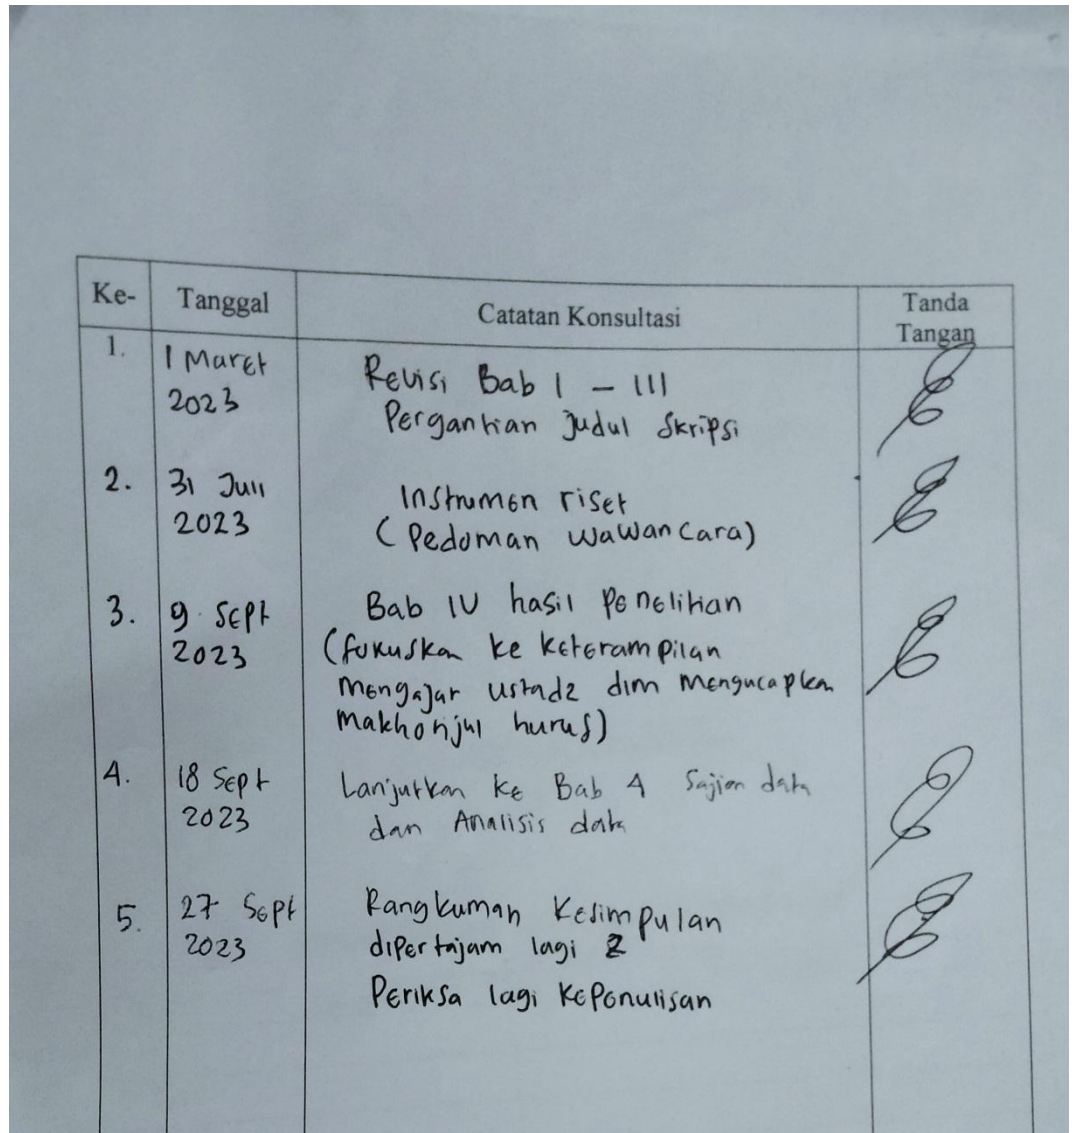 Ke- Tanggal Catatan Konsultasi Tanda
Tangan
1. 1 Maret Revisi Bab I - III
2023 Pergantian Judul Skripsi
2. 31 Juli Instrumen riset
2023 (Pedoman wawancara)
3. 9 Sept Bab IV hasil Penelitian
2023 (fokuskan ke keterampilan
mengajar ustadz dlm mengucapkan
makhorijul huruf)
4. 18 Sept Lanjutkan ke Bab 4 Sajian data
2023 dan Analisis data
5. 27 Sept Rangkuman Kesimpulan
2023 dipertajam lagi &
Periksa lagi kepenulisan